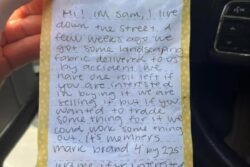 Hi! Im Sam, I live
down the street. A
few weeks ago we
got some landscaping
fabric delivered to us
by accident. We
have one roll left if
you are interested
in buying it. We are
selling it but if you
wanted to trade
some thing for it we
could work some thing
out. Its members
mark brand 4' by 225'